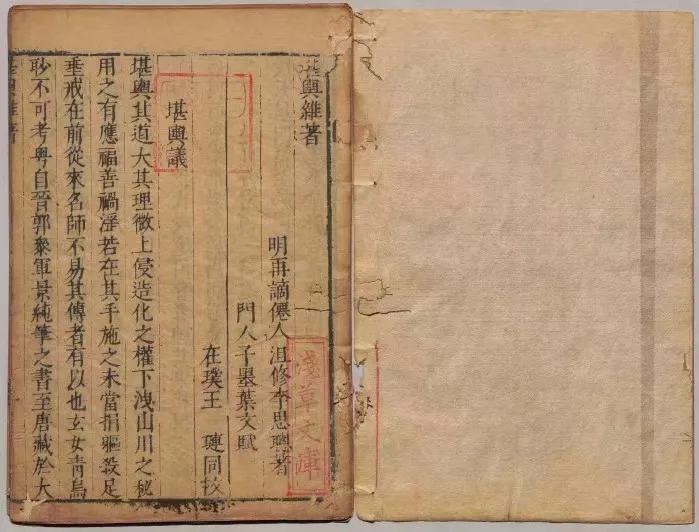 堪輿雜著
明再謫僊人沮修李思聰著
門人子墨葉文賦
在璞王璉同校
堪輿議
堪輿其道大其理微上侵造化之權下洩山川之秘
用之有應福善禍淫若在其手施之未當捐軀殺足
垂戒在前從來名師不易其傳者有以也玄女青烏
眇不可考粵自晉郭叅軍景純筆之書至唐藏於大
淺草文庫